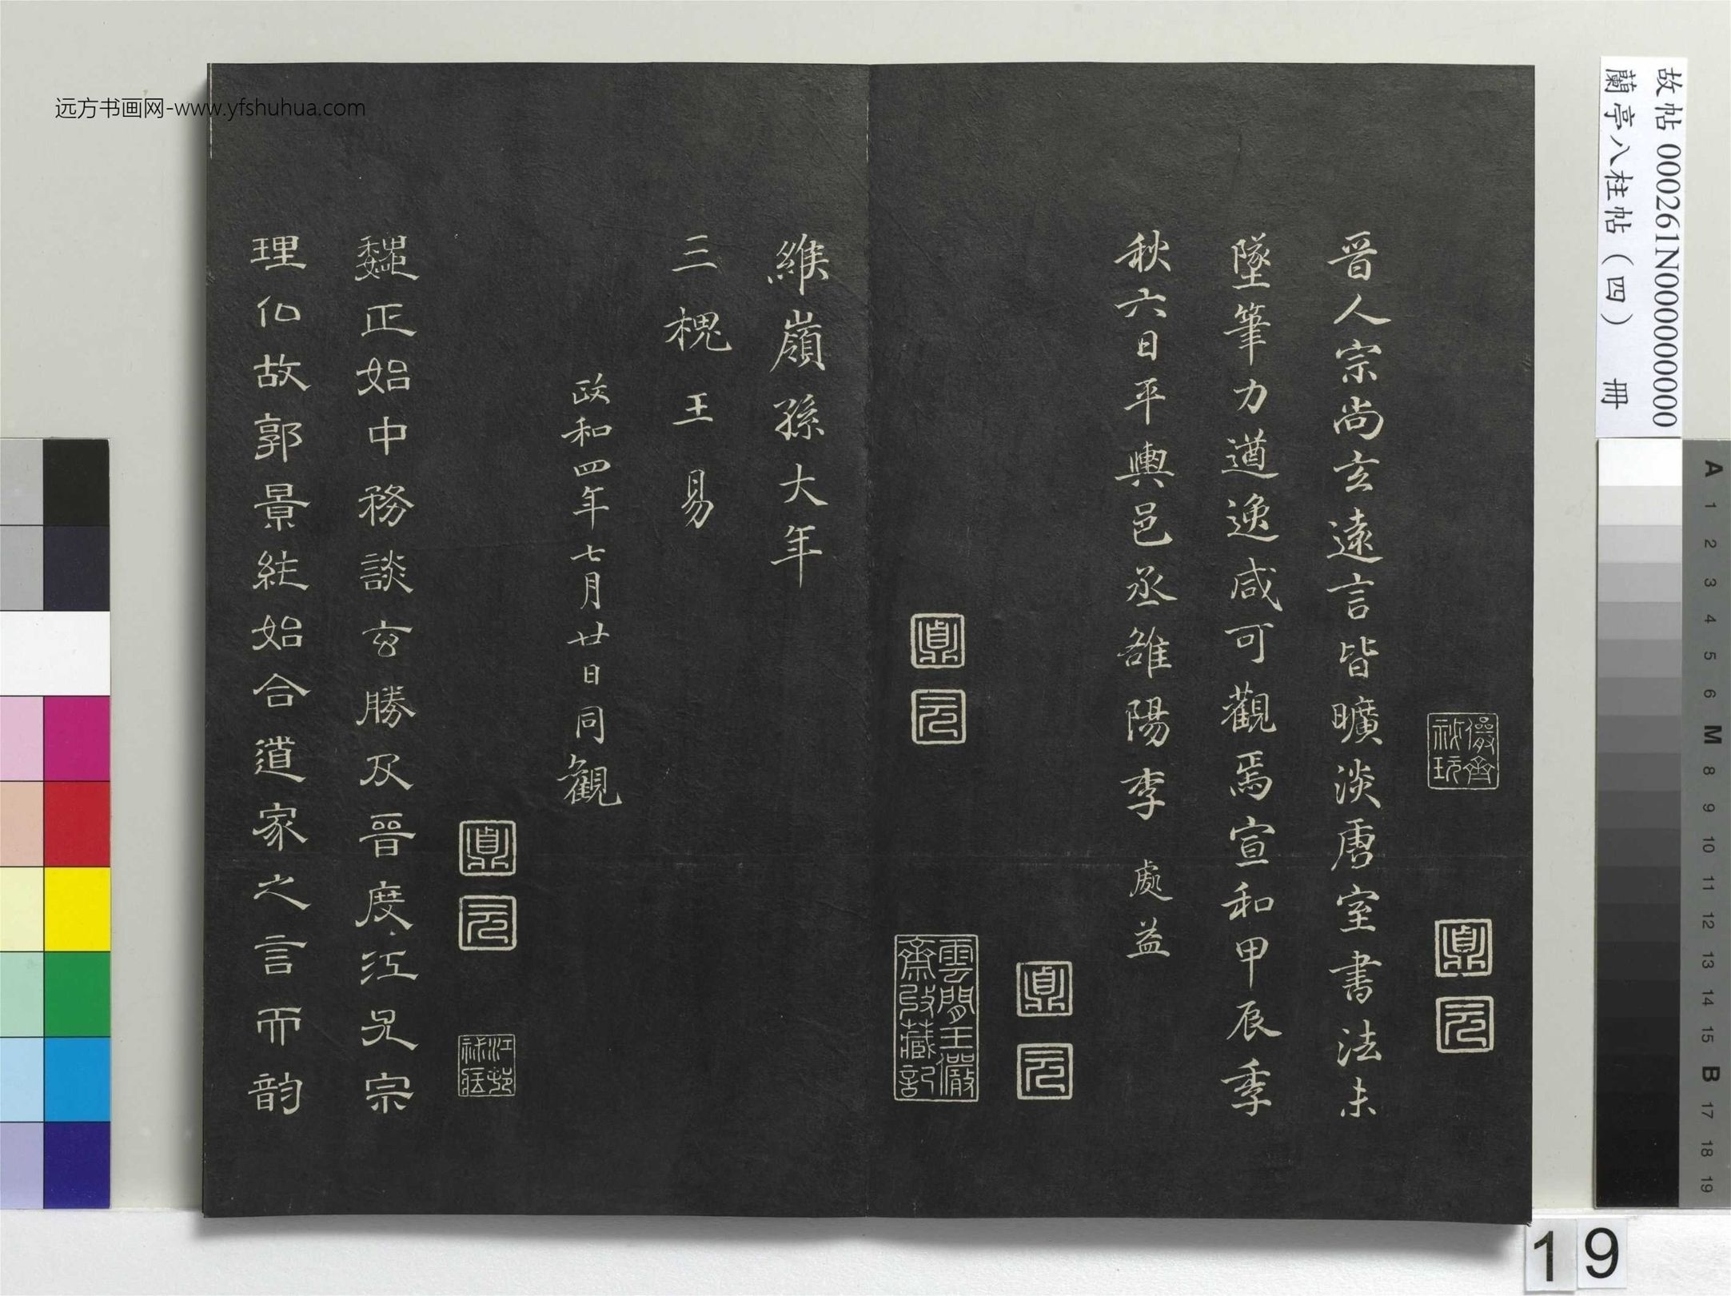 远方书画网-www.yfshuhua.com
故帖 000261N000000000
蘭亭八柱帖（四） 冊
儼齋秘玩
貞元
晋人宗尚玄遠言皆曠淡唐室書法未
墜筆力遒逸咸可觀焉宣和甲辰季
秋六日平輿邑丞雒陽李 處益
貞元
貞元
雲間王儼齋收藏記
維嶺孫大年
三槐王易
政和四年七月廿日同觀
貞元
魏正始中務談玄勝及晉度江尤宗
理仏故郭景純始合道家之言而韵
A 1 2 3 4 5 6 M 8 9 10 11 12 13 14 15 B 17 18 19
19